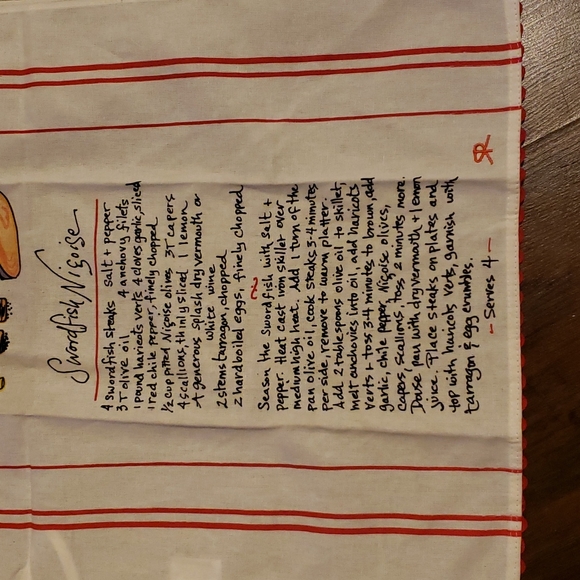 Swordfish Niçoise
4 swordfish steaks salt + pepper
3 T olive oil 4 anchovy filets
1 pound haricots verts 4 cloves garlic, sliced
1 red chile pepper, finely chopped
1/2 cup pitted Niçoise olives 3T capers
4 scallions, thinly sliced 1 lemon
A generous splash dry vermouth or
white wine
2 stems tarragon, chopped
2 hardboiled eggs, finely chopped
Season the Swordfish with salt +
pepper. Heat cast iron skillet over
medium high heat. Add 1 turn of the
pan olive oil, cook steaks 3-4 minutes
per side, remove to warm platter.
Add 2 tablespoons olive oil to skillet,
melt anchovies into oil, add haricots
verts + toss 3-4 minutes to brown, add
garlic, chile pepper, Niçoise olives,
capers, scallions, toss 2 minutes more.
Douse pan with dry vermouth + lemon
juice. Place steaks on plates and
top with haricots verts, garnish with
tarragon & egg crumbles.
- Serves 4 -
RR